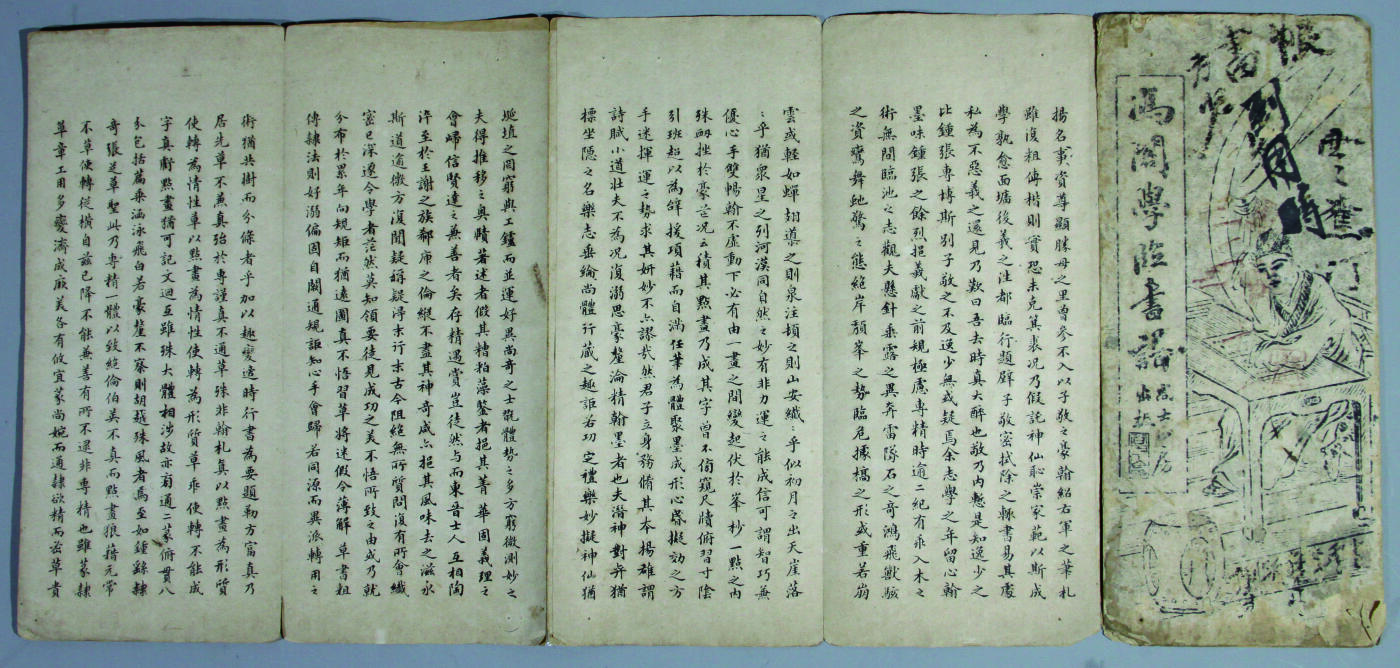 馮閣學臨書譜
到用時
揚名事資尊顯勝母之里曾參不入以子敬之豪翰紹右軍之筆札
雖復粗傳楷則實恐未克其裘况乃假託神仙恥崇家範以斯成
學孰愈面墻後羲之往都臨行題壁子敬密拭除之輒書易其處
私為不惡羲之還見乃歎曰吾去時真大醉也敬乃內慙是知逸少之
比鍾張專博斯别子敬之不及逸少無或疑焉余志學之年留心翰
墨味鍾張之餘烈挹羲獻之前規極慮專精時逾二紀有乖入木之
術無間臨池之志觀夫懸針垂露之異奔雷隊石之奇鴻飛獸駭
之資鸞舞虵驚之態絕岸頹峯之勢臨危據槁之形或重若崩
雲或輕如蟬翅導之則泉注頓之則山安纖〻乎似初月之出天崖落
〻乎猶眾星之列河漢同自然之妙有非力運之能成信可謂智巧兼
優心手雙暢翰不虛動下必有由一畫之間變起伏於峯杪一點之內
殊衄挫於豪芒况云積其點畫乃成其字曾不傍窺尺牘俯習寸陰
引班超以為辭援項籍而自滿任筆為體聚墨成形心昏擬効之方
手迷揮運之勢求其妍妙不亦謬㦲然君子立身務脩其本揚雄謂
詩賦小道壯夫不為况復溺思豪氂淪精翰墨者也夫潛神對弈猶
標坐隱之名樂志垂綸尚體行藏之趣詎若功定禮樂妙擬神仙猶
埏埴之罔窮與工鑪而並運好異尚奇之士翫體勢之多方窮微測妙之
夫得推移之奥賾著述者假其糟粕藻鑒者挹其菁華固義理之
會歸信賢達之兼善者矣存精遇賞豈徒然与而東晉士人互相陶
淬至於王謝之族郗庾之倫縱不盡其神奇咸亦挹其風味去之滋永
斯道逾微方復聞疑稱疑得末行末古今阻絕無所質問復有所會緘
密已深遂令學者茫然莫知領要徒見成功之美不悟所致之由或乃就
分布於累年向規矩而猶遠圖真不悟習草將迷假令薄解草書粗
傳隸法則好溺偏固自閡通規詎知心手會歸若同源而異派轉用之
術猶共樹而分條者乎加以趣變適時行書為要題勒方富真乃
居先草不兼真殆於專謹真不通草殊非翰札真以點畫為形質
使轉為情性草以點畫為情性使轉為形質草乖使轉不能成
字真虧點畫猶可記文迴互雖殊大體相涉故亦旁通二篆俯貫八
分包括篇章涵泳飛白若豪氂不察則胡越殊風者焉至如鍾繇隸
奇張芝草聖此乃專精一體以致絕倫伯英不真而點畫狼藉元常
不草使轉從橫自茲已降不能兼善有所不逮非專精也雖篆隸
草章工用多變濟成厥美各有攸宜篆尚婉而通隸欲精而密草貴